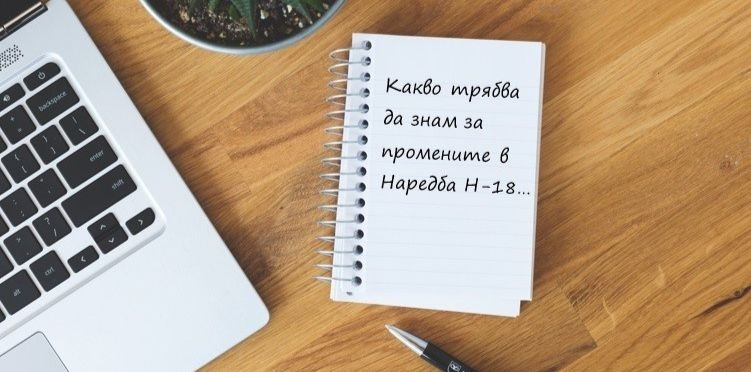 Какво трябва
да знам за
промените в
Наредба Н-18...
backspace
enter
shift
ctrl
alt